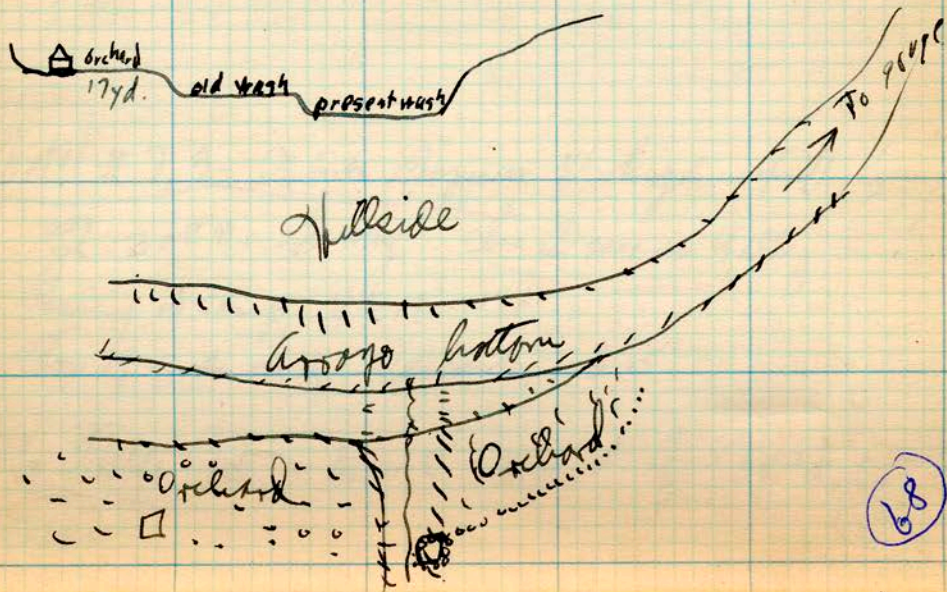 orchard
17yd.
old wash
present wash
To gorge
Hillside
Arroyo bottom
Orchard
Orchard
68